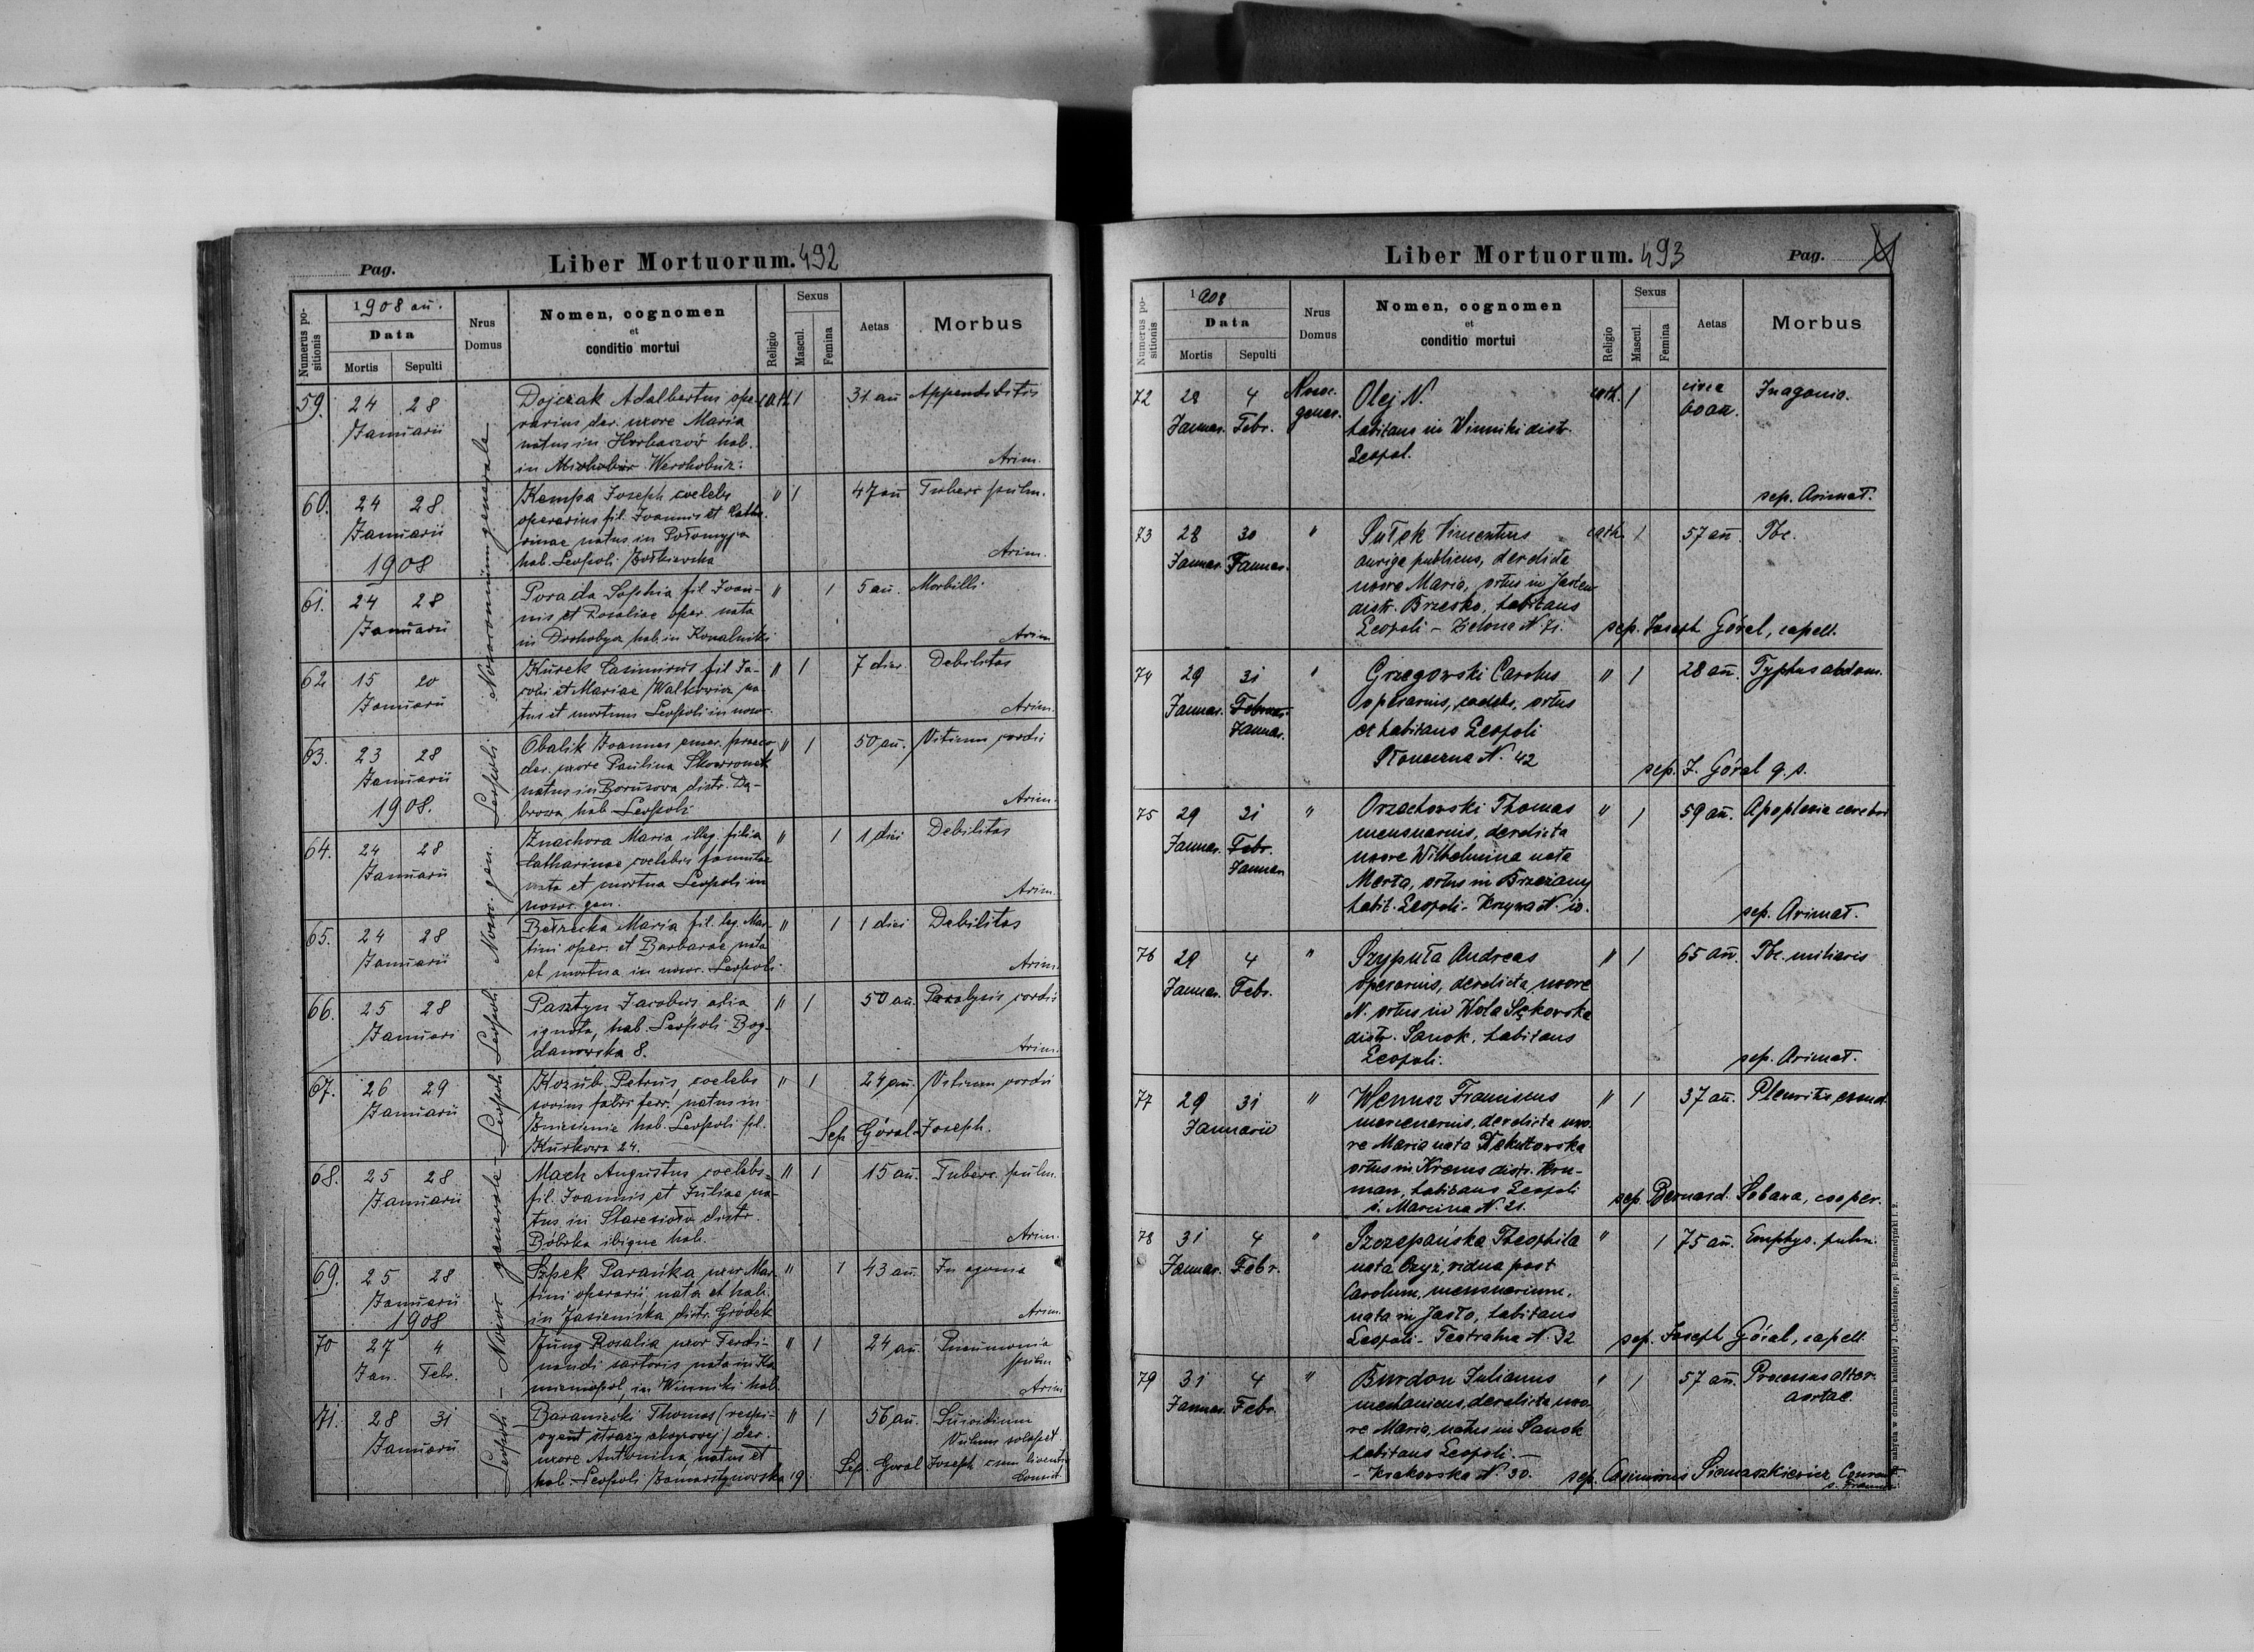 Pag.
Liber Mortuorum. 492
Numerus positionis
1908 an̄.
Data
Mortis
Sepulti
Nrus Domus
Nomen, cognomen
et
conditio mortui
Religio
Sexus
Mascul.
Femina
Aetas
Morbus
Leopoli – Noso generale – Leopoli Leopoli. Nosoc. gen. Leopoli. Nosocomium generale
59. 24 28 Dojczak Adalbertus ope- cath 1 31 an̄ Appendititis
Januarii rarius der. uxore Maria
natus in Horbaczów hab.
in Werchobuz. Arim.
60. 24 28 Kempa Joseph coelebs " 1 47 an̄ Tuberc pulm.
Januarii operarius fil. Joannis et Catha-
1908 rinae natus in Połomyja
hab. Leopoli Żołkiewska Arim.
61. 24 28 Porada Sophia fil Joan- " 1 5 an̄. Morbilli
Januarii nis et Rosaliae oper nata
in Drohobycz hab. in Konalniki Arim
62 15 20 Kurek Casimirus fil Ja- " 1 7 dier. Debilitas
Januarii cobi et Mariae Walkowicz na
tus et mortuus Leopoli in nosoc. Arim.
63. 23 28 Obalik Joannes emer. praeco " 1 50 an̄. Vitium cordis
Januarii der. uxore Paulina Skowronek
1908. natus in Borusova distr. Dą-
browa hab Leopoli Arim.
64. 24 28 Znachora Maria illeg. filia " 1 1 diei Debilitas
Januarii Catharinae coelebis famulae
nata et mortua Leopoli in
nosoc. gen. Arim.
65. 24 28 Bełzecka Maria fil. leg. Mar- " 1 1 diei Debilitas
Januarii tini oper. et Barbarae nata
et mortua in nosoc. Leopoli Arim.
66. 25 28 Pasztyn Jacobus alia " 1 50 an̄. Paralysis cordis
Januari ignota, hab. Leopoli Bog-
danowska 8. Arim.
67. 26 29 Kozub Petrus, coelebs " 1 24 an̄. Vitium cordis
Januarii socius fabri ferr. natus in
Zniesienie hab. Leopoli pl. Sep Góral Joseph.
Kurkowa 24.
68. 25 28 Mach Augustus coelebs " 1 15 an̄. Tuberc. pulm.
Januarii fil. Joannis et Juliae na-
tus in Staresioło distr.
Bóbrka ibique hab. Arim.
69. 25 28 Szpek Parańka uxor Mar- " 1 43 an̄. In agonia
Januarii tini operarii nata et hab.
1908 in Jasieniska distr. Gródek Arim.
70 27 4 Jung Rosalia uxor Ferdi- " 1 24 an̄. Pneumonia
Jan. Febr. nandi sartoris nata in Ka pulm
mieniopol, in Winniki hab. Arim
71. 28 31 Baraniecki Thomas (respi- " 1 56 an̄. Suicidium
Januarii cyent straży akcyzowej) der. Vulnus sclopet
uxore Antonina, natus et Sep. Goral Joseph cum licentia
hab. Leopoli Zamarstynowska 19. Consist.
Liber Mortuorum. 493
Pag.
Numerus positionis
1908
Data
Mortis
Sepulti
Nrus Domus
Nomen, cognomen
et
conditio mortui
Religio
Sexus
Mascul.
Femina
Aetas
Morbus
72 28 4 Nosoc. Olej N. cath. 1 circa In agonia.
Januar. Febr. gener. habitans in Winniki distr. 60 an.
Leopol.
sep. Arimat.
73 28 30 " Sułek Vincentius cath. 1 57 an̄. Tbc.
Januar. Januar. auriga publicus, derelicta
uxore Maria, ortus in Jasten
distr. Brzesko, habitans
Leopoli – Zielona N. 71. sep. Joseph Góral, capell.
74 29 31 " Grzegowski Carolus " 1 28 an̄. Typhus abdom.
Januar. Februar. operarius, coelebs, ortus
Januar. et habitans Leopoli
Słoneczna N. 42 sep. J. Góral q. s.
75 29 31 " Orzachowski Thomas " 1 59 an̄. Apoplexia cerebri
Januar. Febr. mensuarius, derelicta
Januar uxore Wilhelmina nata
Merta, ortus in Brzeżany
habit. Leopoli – Krzywa N. 10. sep. Arimat.
76 29 4 " Szypuła Andreas " 1 65 an̄. Tbc. miliaris
Januar. Febr. operarius, derelicta uxore
N. ortus in Wola Sękowska
distr. Sanok, habitans
Leopoli. sep. Arimat.
77 29 31 " Wenusz Franciscus " 1 37 an̄. Pleuritis exsud.
Januarii mercenarius, derelicta uxo-
re Maria nata
ortus in Krenus distr.
man, habitans Leopoli
s. Marcina N. 21. sep. Bernard. Sobana, cooper.
78 31 4 " Szczepańska Theophila " 1 75 an̄. Emphys. pulm.
Januar. Febr. nata Czyż, vidua post
Carolum, mensuarium,
nata in Jasło, habitans
Leopoli – Teatralna N. 32 sep. Joseph Góral, capell.
79 31 4 " Burdon Julianus " 1 57 an̄. Processus ather.
Januar. Febr. mechanicus, derelicta uxo- aortae.
re Maria, natus in Sanok
habitans Leopoli. –
– Krakowska N. 30. sep. Casimirus Siemaszkiewicz Convent.
s. Francisci
nabycia w drukarni katolickiej J. Chęcińskiego, pl. Bernardyński l. 2.